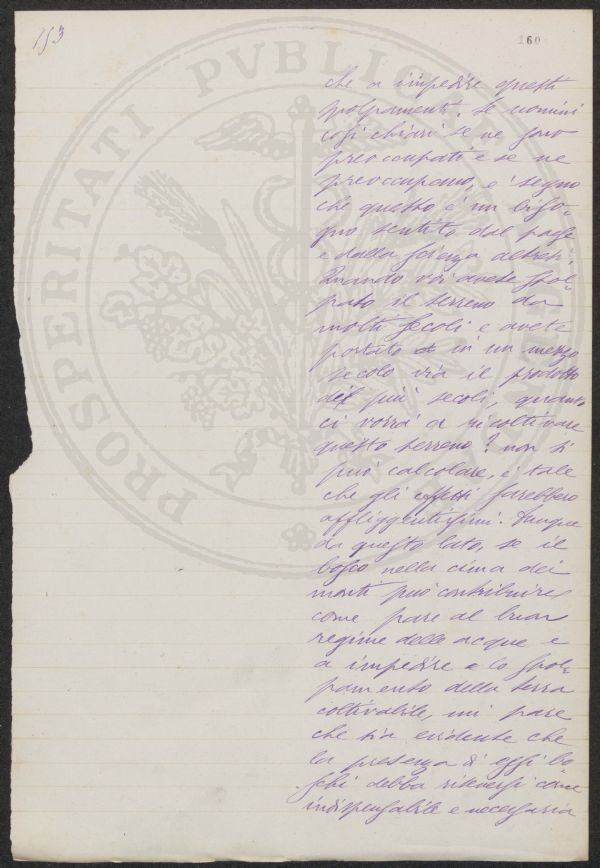 153
160
che a impedire questi
spolpamenti. Se uomini
così chiari se ne sono
preoccupati e se ne
preoccupano, e' segno
che questo è un biso-
gno sentito dal paese
e dalla scienza altresì.
Quando voi avete spol-
pato il terreno da
molti secoli e avete
portato in un mezzo
secolo via il prodotto
di più secoli, quanto
ci vorrà a ricoltivare
questo terreno? non si
può calcolare, e' tale
che gli effetti sarebbero
affliggentissimi. Dunque
da questo lato, se il
bosco nella cima dei
monti può contribuire
come pare al buon
regime delle acque e
a impedire lo spol-
pamento della terra
coltivabile, mi pare
che sia evidente che
la presenza di essi bo-
schi debba ritenersi come
indispensabile e necessaria
PROSPERITATI PVBLICAE